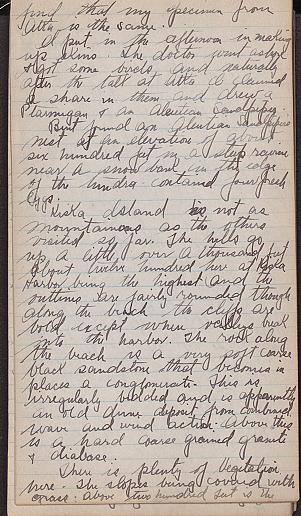 find that my specimen from
Atta is the same.
I put in the afternoon in making
up skins. The doctor went ashore
& got some birds and naturally
after the talk at Atta I claimed
a share in them and drew a
Ptarmigan & an Aleutian Sandpiper.
But found an Aleutian Sandpiper's
nest at an elevation of about
six hundred feet in a steep ravine
near a snow bank on the edge
of the tundra. contained four fresh
eggs.
Kiska Island is not as
mountainous as the others
visited so far. The hills go
up a little over a thousand feet
about twelve hundred here at Kiska
Harbor being the highest and the
outlines are fairly rounded though
along the beach the cliffs are
bold except where valleys break
into the harbor. The rock along
the beach is a very soft coarse
black sandstone that becomes in
places a conglomerate. This is
irregularly bedded and is apparently
an old dune deposit from combined
wave and wind action. Above this
is a hard coarse grained granite
& diabase.
There is plenty of Vegetation
here. The slopes being covered with
grass: above two hundred feet is the